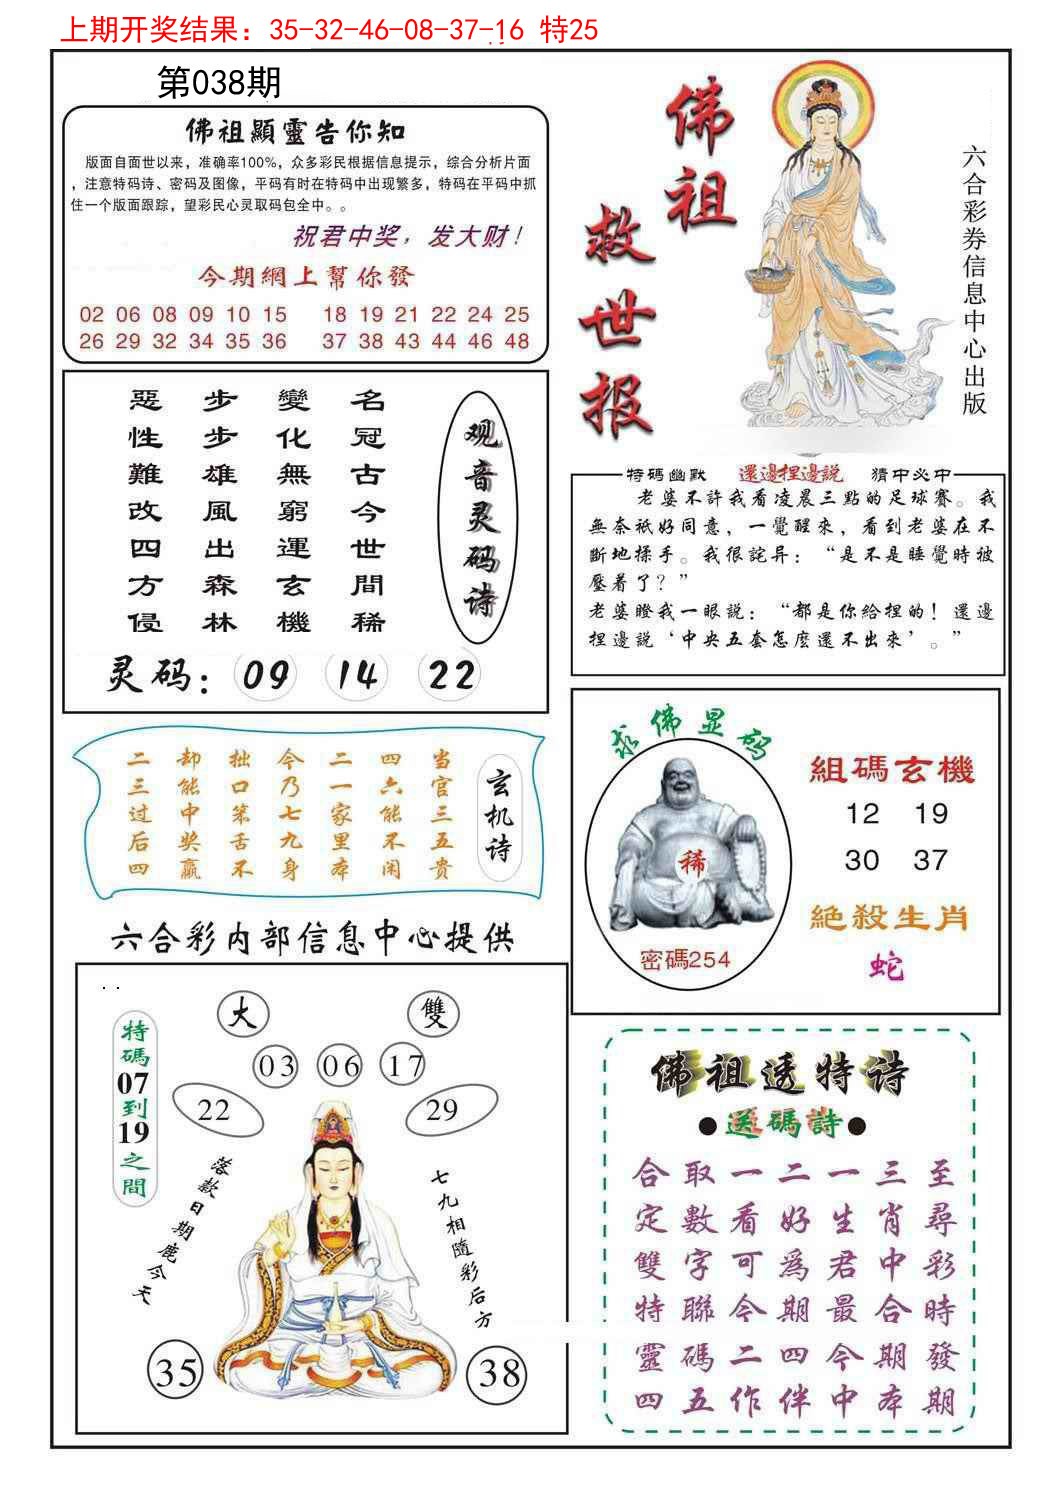 上期开奖结果：35-32-46-08-37-16 特25
第038期
佛祖顯靈告你知
版面自面世以来，准确率100%，众多彩民根据信息提示，综合分析片面
，注意特码诗、密码及图像，平码有时在特码中出现繁多，特码在平码中抓
住一个版面跟踪，望彩民心灵取码包全中。。
祝君中奖，发大财！
今期網上幫你發
02 06 08 09 10 15 18 19 21 22 24 25
26 29 32 34 35 36 37 38 43 44 46 48
佛祖
救世报
六合彩券信息中心出版
观音灵码诗
名冠古今世間稀
變化無窮運玄機
步步雄風出森林
惡性難改四方侵
灵码：09 14 22
特碼幽默 還邊捏邊説 猜中必中
老婆不許我看凌晨三點的足球賽。我
無奈祇好同意，一覺醒來，看到老婆在不
斷地揉手。我很詫异：“是不是睡覺時被
壓着了？”
老婆瞪我一眼説：“都是你給捏的！還邊
捏邊説‘中央五套怎麽還不出來’。”
玄机诗
当官三五贵
四六能不闲
二一家里本
今乃七九身
拙口笨舌不
却能中奖赢
二三过后四
求佛显码
稀
密碼254
組碼玄機
12 19
30 37
絶殺生肖
蛇
六合彩内部信息中心提供
大
雙
特碼07到19之間
03 06 17
22
29
落款日期鹿今天
七九相隨彩后方
35
38
佛祖透特诗
●送碼詩●
至尋彩時發期
三肖中合期本
一生君最今中
二好為期四伴
一看可今二作
取數字聯碼五
合定雙特靈四